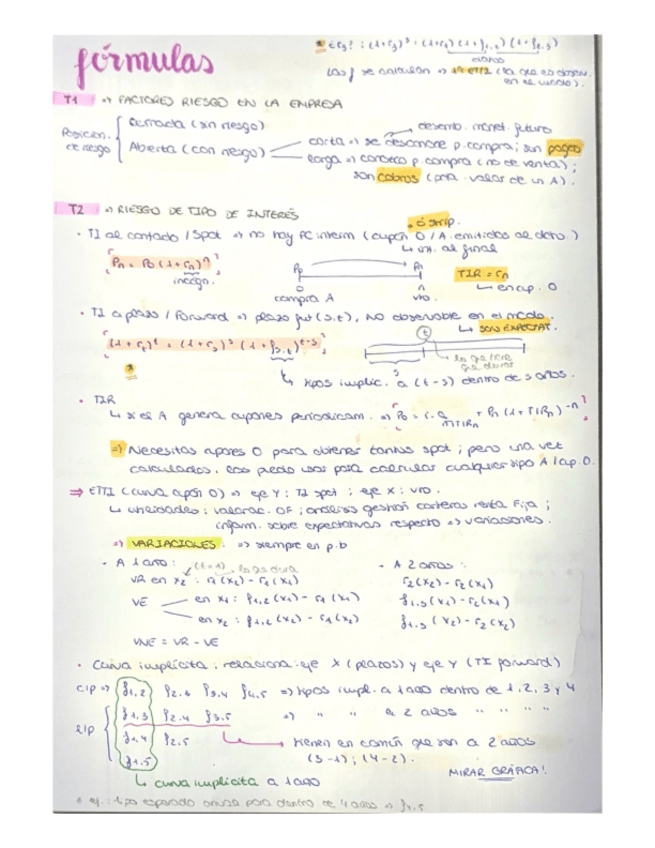 fórmulas
* ¿r₃? : (1+r₃)³ = (1+r₁)(1+f₁,₂)(1+f₂,₃)
T1 ⇒ FACTORES RIESGO EN LA EMPRESA
Posición de riesgo
Cerrada (sin riesgo)
Abierta (con riesgo)
corta ⇒ se desconoce p. compra; son pagos
desemb. monet. futuro
larga ⇒ conozco p. compra (no de venta);
son cobros (pna. valor de un A).
T2 ⇒ RIESGO DE TIPO DE INTERÉS
· TI al contado / Spot ⇒ no hay PC interm (cupón 0 / A. emitidos al dcto.)
ó strip.
al final
Pn = P0 (1+rn)ⁿ
incógn.
P0 Pn
0 n
compra A vto.
TIR = rn
en cup. 0
· TI a plazo / Forward ⇒ plazo fut (s,t), NO observable en el mcdo.
SON EXPECTAT.
(1+rt)ᵗ = (1+rs)ˢ (1+fs,t)ᵗ⁻ˢ
*
t
s
tipos implíc. a (t-s) dentro de s años.
· TIR
si el A genera cupones periodicam. ⇒ P0 = c·a n¬TIRn + Pn (1+TIRn)⁻ⁿ
⇒ Necesitas cupones 0 para obtener tantos spot; pero una vez
calculados, los puedo usar para calcular cualquier tipo A / cup. 0.
⇒ ETTI (curva cupón 0) ⇒ eje Y: TI spot; eje X: vto.
utilidades: valorac. OF; análisis gestión carteras renta fija;
inform. sobre expectativas respecto ⇒ variaciones.
⇒ VARIACIONES: ⇒ siempre en p.b
· A 1 año:
VR en x₂: r₁(x₂) - r₁(x₁)
VE
en x₁: f₁,₂(x₁) - r₁(x₁)
en x₂: f₁,₂(x₂) - r₁(x₂)
VNE = VR - VE
· A 2 años:
r₂(x₂) - r₂(x₁)
f₁,₃(x₁) - r₂(x₁)
f₁,₃(x₂) - r₂(x₂)
· Curva implícita: relaciona: eje X (plazos) y eje Y (TI forward)
c/p ⇒ f₁,₂ f₂,₄ f₃,₄ f₄,₅ ⇒ tipos impl. a 1 año dentro de 1, 2, 3 y 4
l/p f₁,₃ f₂,₄ f₃,₅ ⇒ " " a 2 años " " " "
f₁,₄ f₂,₅
f₁,₅
tienen en común que son a 2 años
(3-1); (4-2).
curva implícita a 1 año
MIRAR GRÁFICA!
ej.: tipo esperado anual para dentro de 4 años ⇒ f₄,₅